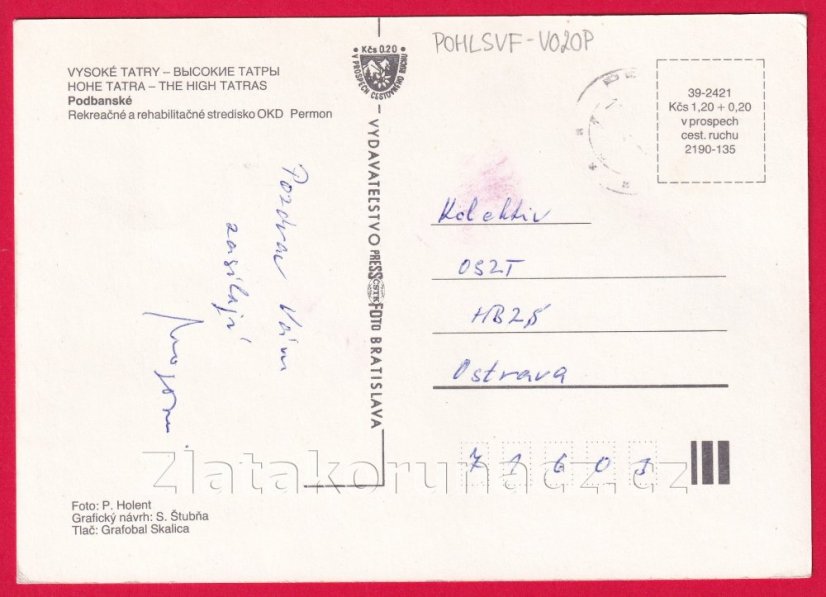 POHLSVF-VO20P
VYSOKÉ TATRY – ВЫСОКИЕ ТАТРЫ
HOHE TATRA – THE HIGH TATRAS
Podbanské
Rekreačné a rehabilitačné stredisko OKD Permon
Kčs 0.20
V PROSPECH CESTOVNÉHO RUCHU
39-2421
Kčs 1,20 + 0,20
v prospech
cest. ruchu
2190-135
VYDAVATEĽSTVO PRESSFOTO BRATISLAVA
ČSTK
Pozdrav Vám
zasílají
Kolektiv
OSZT
HBZS
Ostrava
71603
Zlatakorunacz.cz
Foto: P. Holent
Grafický návrh: S. Štubňa
Tlač: Grafobal Skalica